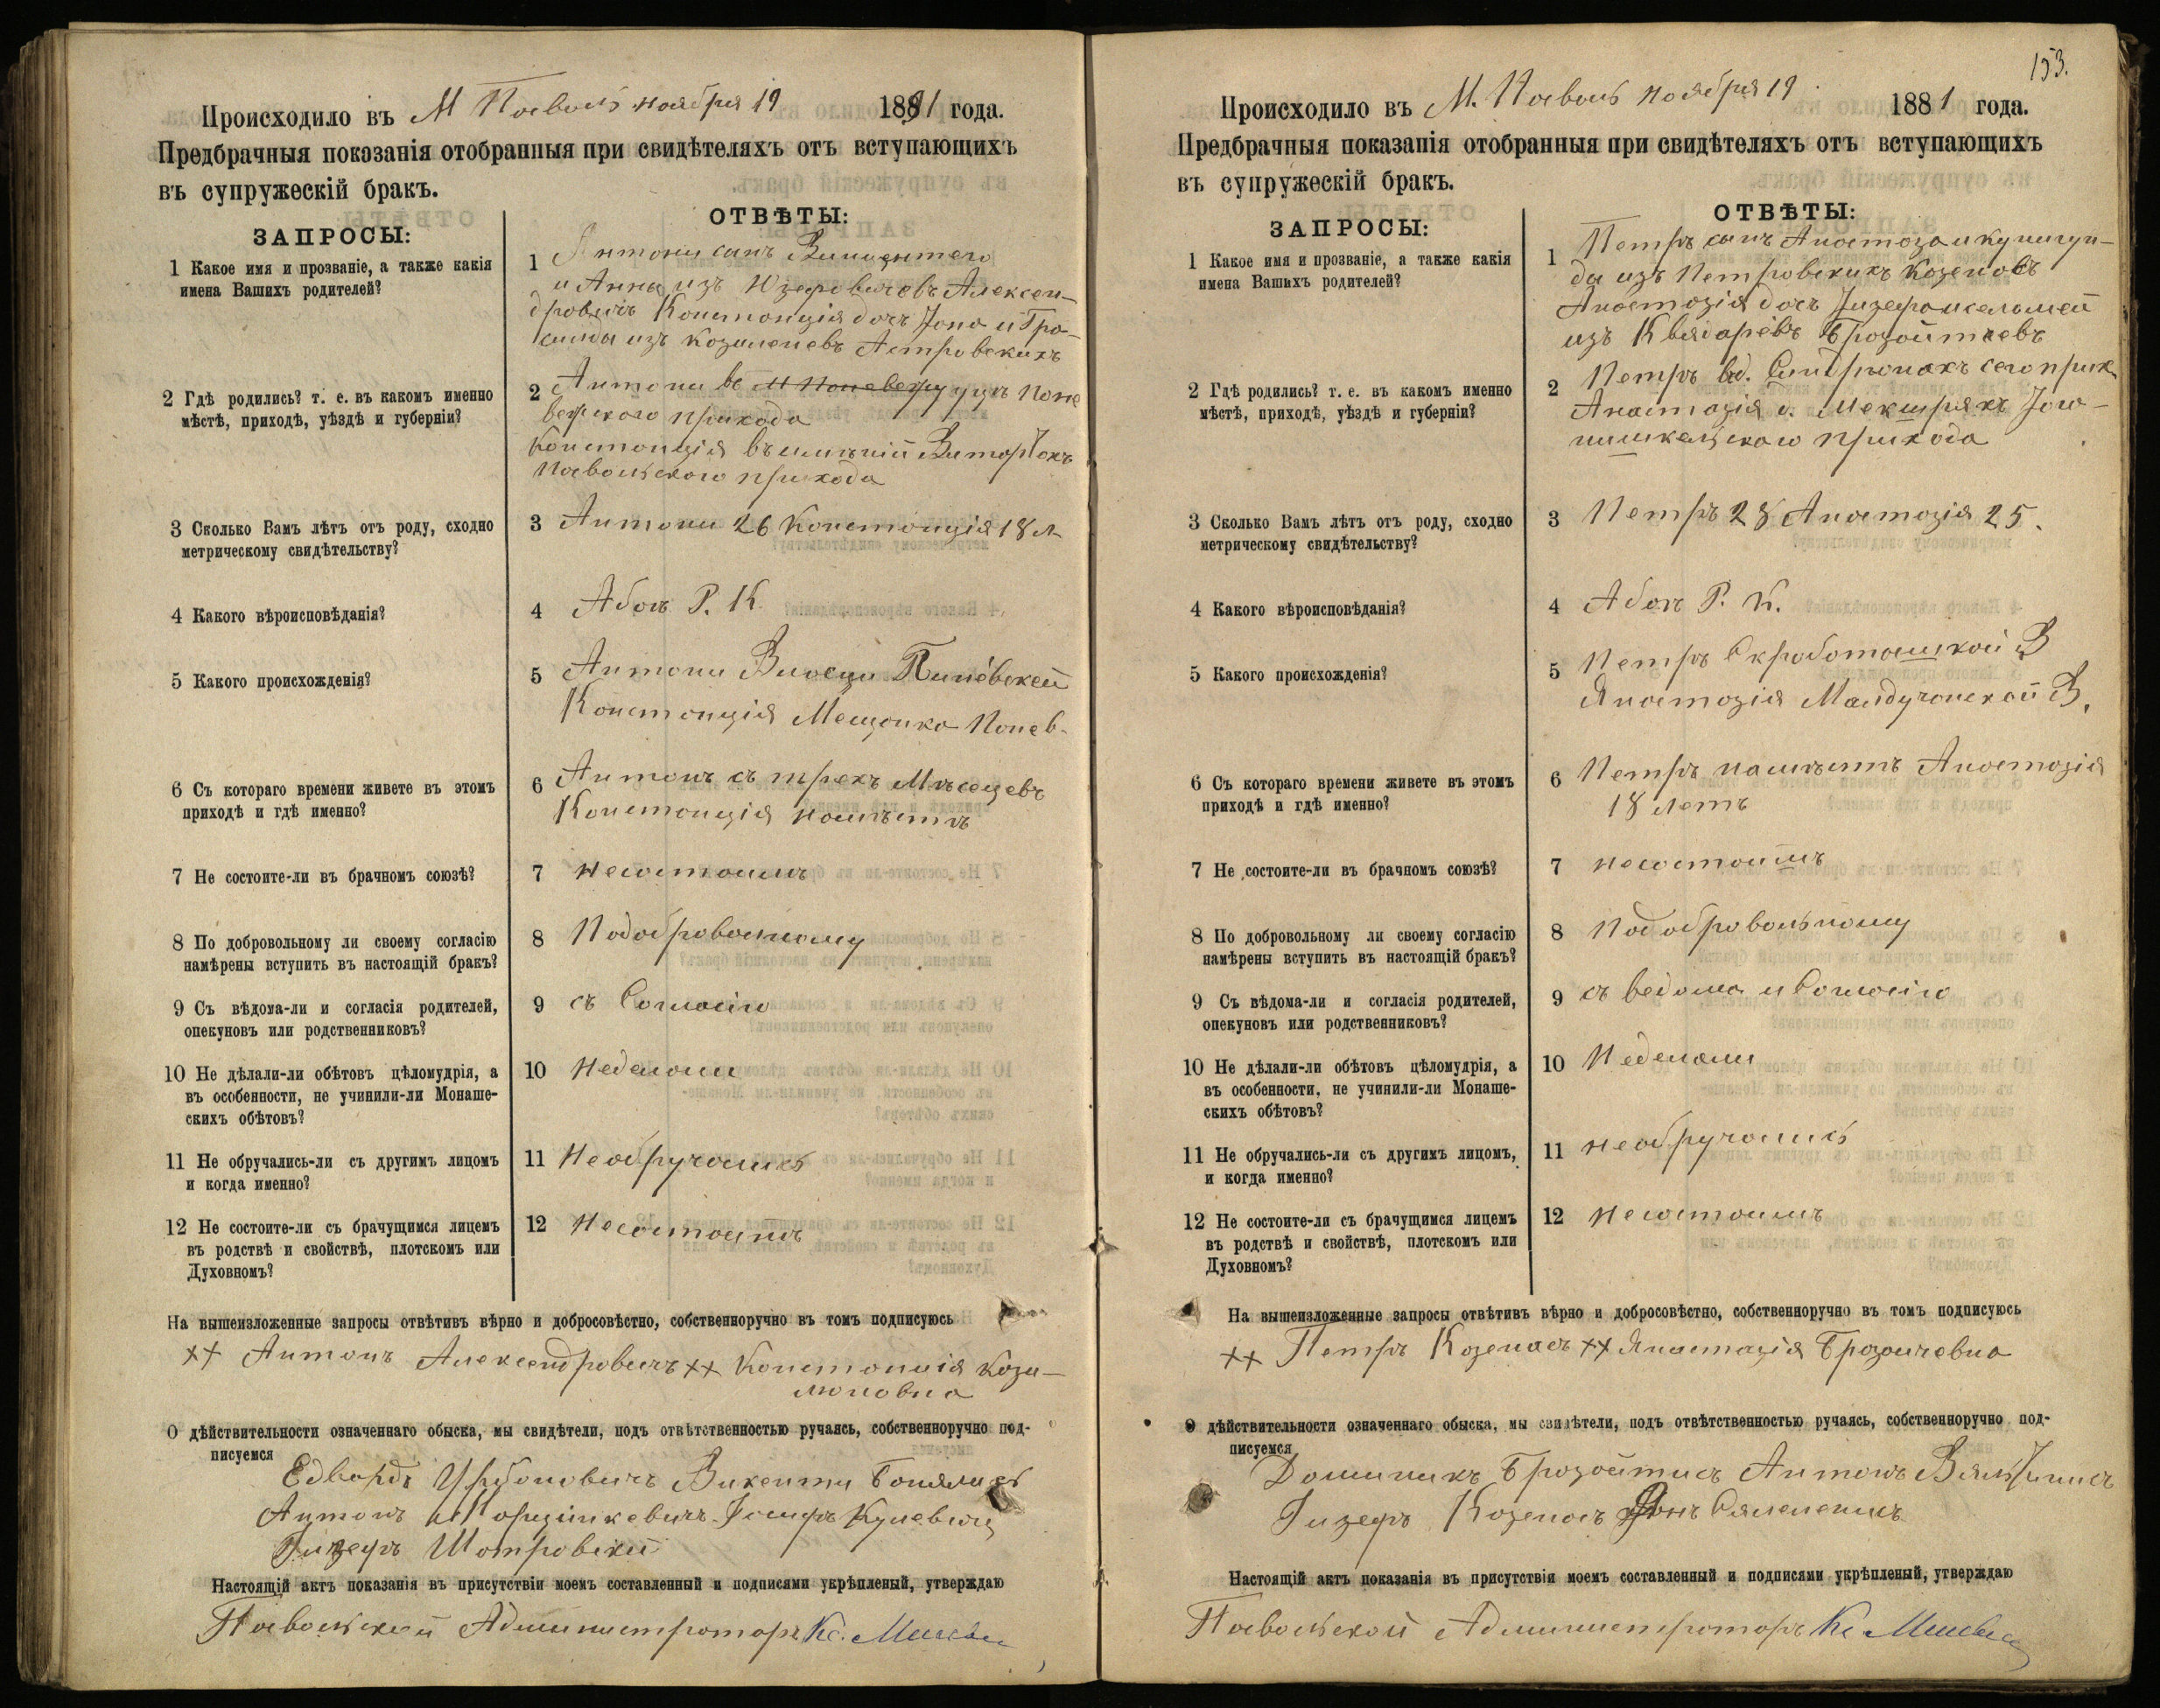 Происходило въ М Посволь ноября 19 1881 года.
Предбрачныя показанія отобранныя при свидѣтеляхъ отъ вступающихъ
въ супружескій бракъ.
ЗАПРОСЫ:
ОТВѢТЫ:
1 Какое имя и прозваніе, а также какія
имена Вашихъ родителей?
1 Антони сынъ Винцентего
и Анны изъ Юзефовичовъ Алексан-
дровичъ Констанція дочь
изъ Петровскихъ
2 Гдѣ родились? т. е. въ какомъ именно
мѣстѣ, приходѣ, уѣздѣ и губерніи?
2 Антони въ Поне
вежского прихода
Констанція въ имѣніи
Посвольского прихода
3 Сколько Вамъ лѣтъ отъ роду, сходно
метрическому свидѣтельству?
3 Антони 26 Констанція 18 л
4 Какого вѣроисповѣданія?
4 Абоя Р. К.
5 Какого происхожденія?
5 Антони
Констанція Мещанка Понев-
6 Съ котораго времени живете въ этомъ
приходѣ и гдѣ именно?
6 Антонъ съ трехъ Мѣсецевъ
Констанція
7 Не состоите-ли въ брачномъ союзѣ?
7 несостоимъ
8 По добровольному ли своему согласію
намѣрены вступить въ настоящій бракъ?
8 Подобровольному
9 Съ вѣдома-ли и согласія родителей,
опекуновъ или родственниковъ?
9 съ Согласію
10 Не дѣлали-ли обѣтовъ цѣломудрія, а
въ особенности, не учинили-ли Монаше-
скихъ обѣтовъ?
10 Неделали
11 Не обручались-ли съ другимъ лицомъ
и когда именно?
11 Необручались
12 Не состоите-ли съ брачущимся лицемъ
въ родствѣ и свойствѣ, плотскомъ или
Духовномъ?
12 Несостоимъ
На вышеизложенные запросы отвѣтивъ вѣрно и добросовѣстно, собственноручно въ томъ подписуюсь
×× Антонъ Александровичъ ×× Констанція Кози-
люновна
О дѣйствительности означеннаго обыска, мы свидѣтели, подъ отвѣтственностью ручаясь, собственноручно под-
писуемся
Едвардъ Урбановичъ Викенти
Антонъ Іосифъ
Іизефъ Шотровскій
Настоящій актъ показанія въ присутствіи моемъ составленный и подписями укрѣпленый, утверждаю
Посвольскій Администраторъ Кс.
153.
Происходило въ М. Посволь ноября 19 1881 года.
Предбрачныя показанія отобранныя при свидѣтеляхъ отъ вступающихъ
въ супружескій бракъ.
ЗАПРОСЫ:
ОТВѢТЫ:
1 Какое имя и прозваніе, а также какія
имена Вашихъ родителей?
1 Петръ сынъ Анастаза и Кунигун-
ды изъ Петровскихъ Козенасъ
Анастазія дочь Іизефа и Саломеи
изъ Брозойтсевъ
2 Гдѣ родились? т. е. въ какомъ именно
мѣстѣ, приходѣ, уѣздѣ и губерніи?
2 Петръ сего прих
Анастазія Іога-
нишкельского прихода
3 Сколько Вамъ лѣтъ отъ роду, сходно
метрическому свидѣтельству?
3 Петръ 28 Анастозія 25.
4 Какого вѣроисповѣданія?
4 Абоя Р. К.
5 Какого происхожденія?
5 Петръ В
Анастозія В.
6 Съ котораго времени живете въ этомъ
приходѣ и гдѣ именно?
6 Петръ Анастозія
18 летъ
7 Не состоите-ли въ брачномъ союзѣ?
7 несостоимъ
8 По добровольному ли своему согласію
намѣрены вступить въ настоящій бракъ?
8 Подобровольному
9 Съ вѣдома-ли и согласія родителей,
опекуновъ или родственниковъ?
9 съ ведома и Согласію
10 Не дѣлали-ли обѣтовъ цѣломудрія, а
въ особенности, не учинили-ли Монаше-
скихъ обѣтовъ?
10 Неделали
11 Не обручались-ли съ другимъ лицомъ,
и когда именно?
11 необручались
12 Не состоите-ли съ брачущимся лицемъ
въ родствѣ и свойствѣ, плотскомъ или
Духовномъ?
12 Несостоимъ
На вышеизложенные запросы отвѣтивъ вѣрно и добросовѣстно, собственноручно въ томъ подписуюсь
×× Петръ Козенасъ ×× Анастазія Брозоичевна
О дѣйствительности означеннаго обыска, мы свидѣтели, подъ отвѣтственностью ручаясь, собственноручно под-
писуемся
Доминикъ Брозойтисъ Антонъ
Іизефъ Козенасъ
Настоящій актъ показанія въ присутствія моемъ составленный и подписями укрѣпленый, утверждаю
Посвольской Администраторъ Кс